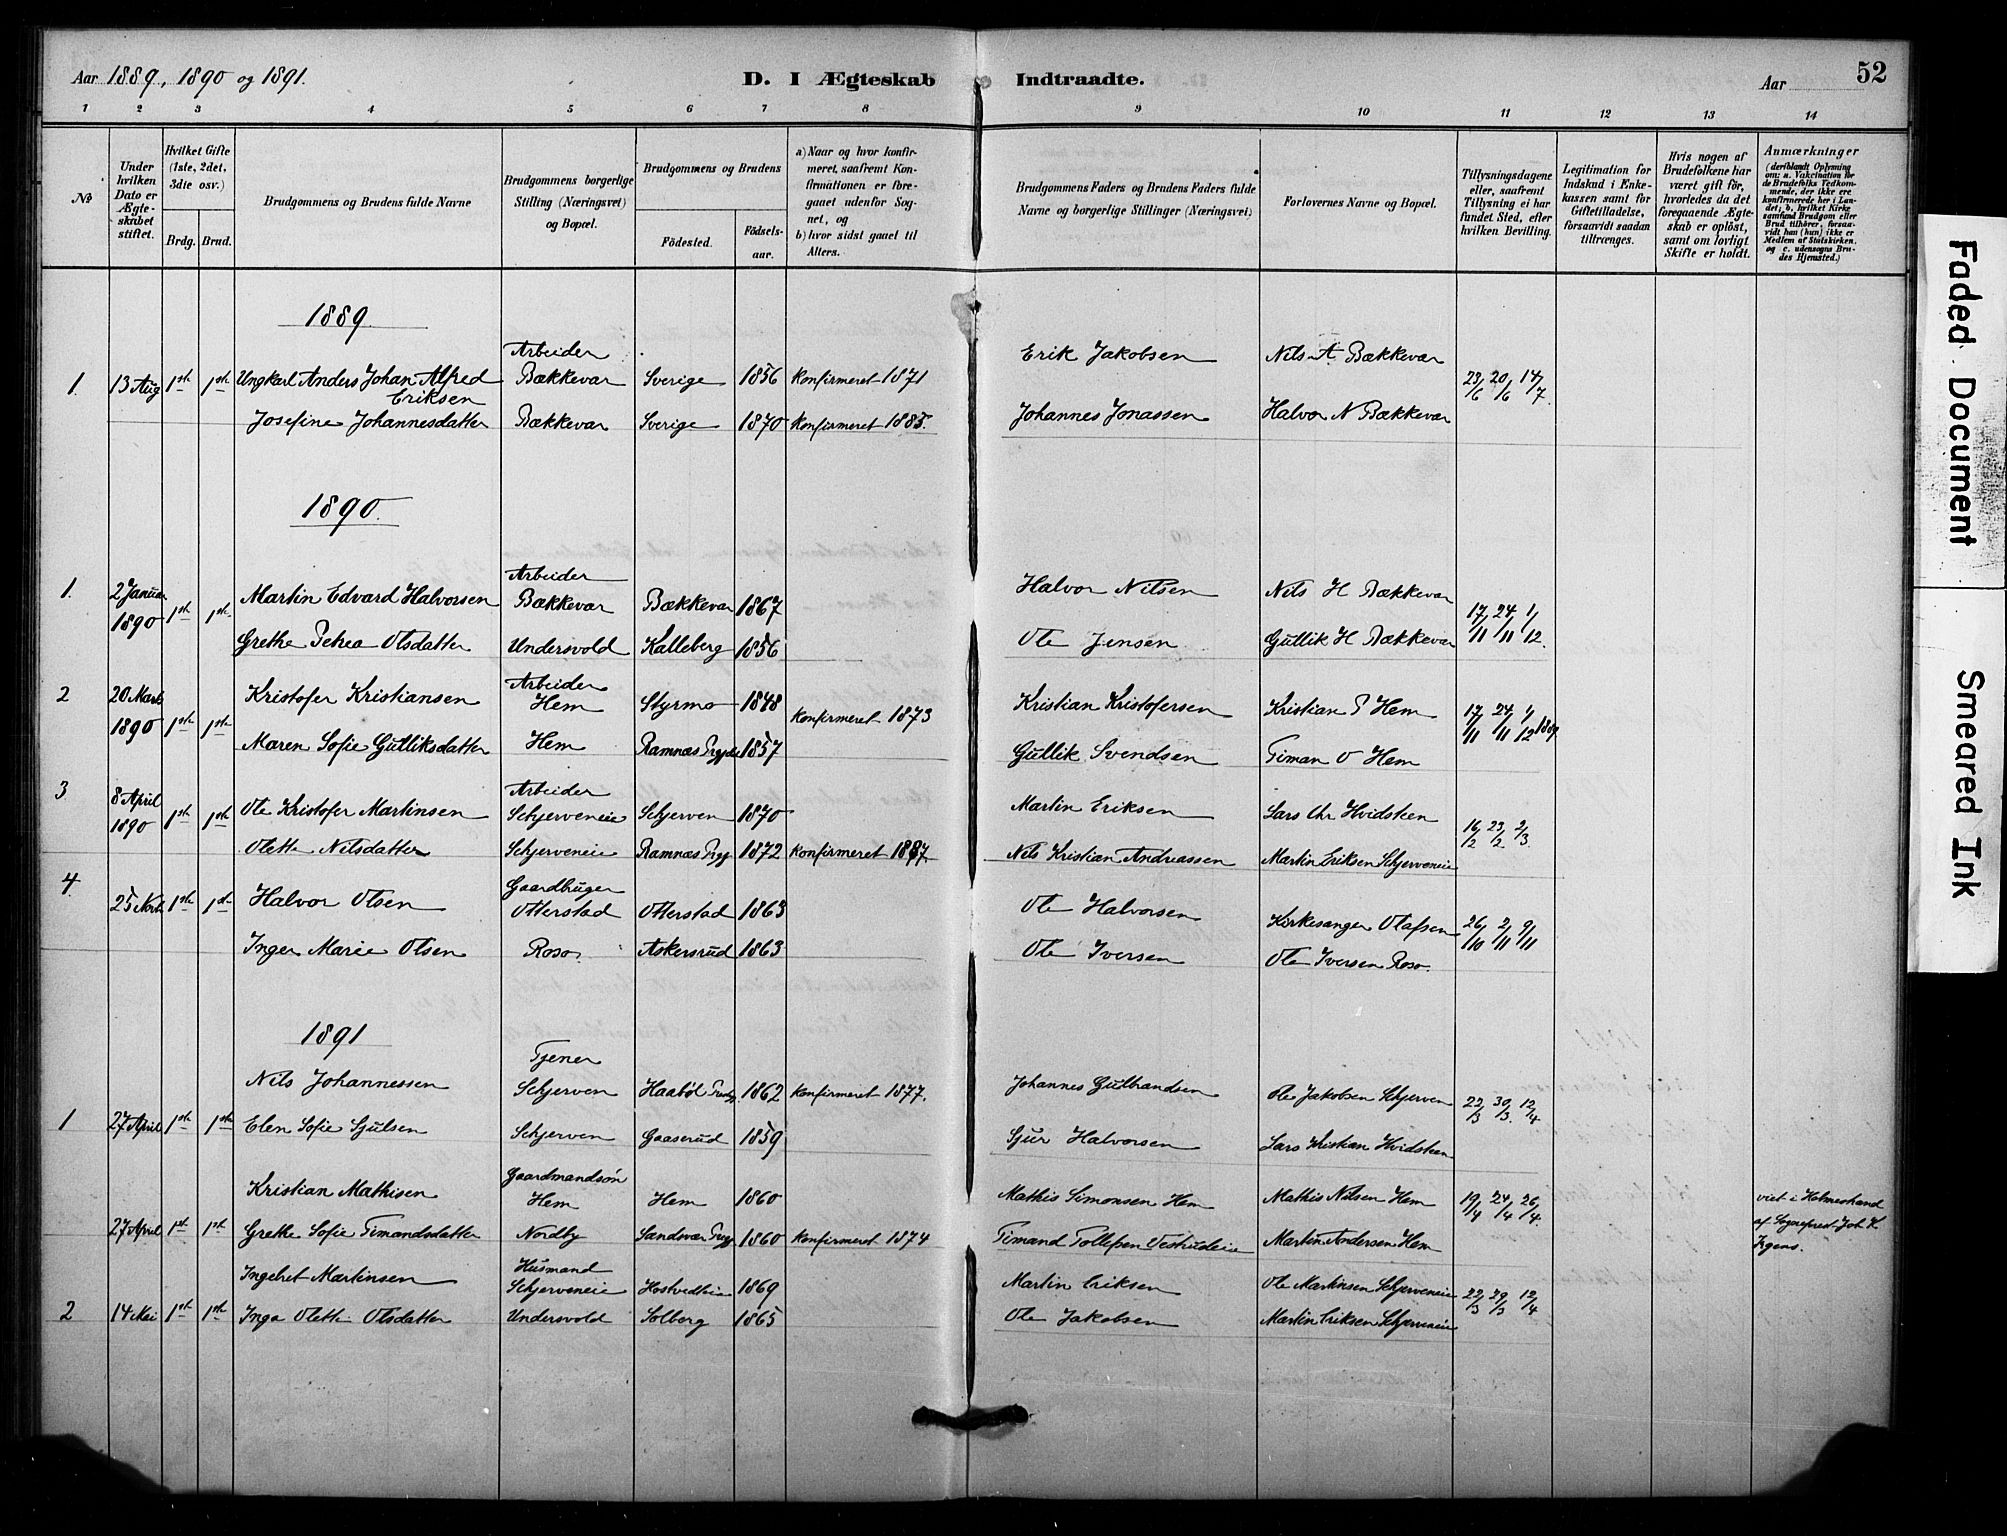 Aar 1889, 1890 og 1891.
D. I Ægteskab Indtraadte.
Aar
52
1 2 3 4 5 6 7 8 9 10 11 12 13 14
No
Under hvilken Dato er Ægte-skabet stiftet.
Hvilket Gifte (1ste, 2det, 3die osv.)
Brdg. Brud.
Brudgommens og Brudens fulde Navne
Brudgommens borgerlige Stilling (Næringsvei) og Bopæl.
Brudgommens og Brudens
Födested. Födsels-aar.
a) Naar og hvor konfir-meret, saafremt Kon-firmationen er fore-gaaet udenfor Sog-net, og
b) hvor sidst gaaet til Alters.
Brudgommens Faders og Brudens Faders fulde Navne og borgerlige Stillinger (Næringsvei)
Forlovernes Navne og Bopæl.
Tillysningsdagene eller, saafremt Tillysning ei har fundet Sted, efter hvilken Bevilling.
Legitimation for Indskud i Enke-kassen samt for Giftetilladelse, forsaavidt saadan tiltrænges.
Hvis nogen af Brudefolkene har været gift för, hvorledes da det foregaaende Ægte-skab er oplöst, samt om lovligt Skifte er holdt.
Anmærkninger
(deriblandt Oplysning om: a. Vakcination for de Brudefolks Vedkom-mende, der ikke ere konfirmerede her i Lan-det; b. hvilket Kirke-samfund Brudgom eller Brud tilhörer, forsaa-vidt han (hun) ikke er Medlem af Statskirken, og c. udensogns Bru-des Hjemsted.)
1889.
Arbeider Erik Jakobsen Nils A Bækkevar
1. 13 Aug 1st 1st Ungkarl Anders Johan Alfred Eriksen Bækkevar Sverige 1856 Konfirmeret 1871 23/6 20/6 14/7.
Josefine Johannesdatter Bækkevar Sverige 1870 Konfirmeret 1885. Johannes Jonassen Halvor N Bækkevar
1890.
Arbeider
1. 2 Januar 1890 1st 1st Martin Edvard Halvorsen Bækkevar Bækkevar 1867 Halvor Nilsen Nils H Bækkevar 17/11 24/11 1/12.
Grethe Petrea Olsdatter Undersvold Kalleberg 1856 Ole Jensen Gullik H Bækkevar
2 20 Marts 1890 1st 1st Kristofer Kristiansen Arbeider Hem Styrmo 1848 Konfirmeret 1873 Kristian Kristofersen Kristian P Hem 17/11 24/11 1/12 1889
Maren Sofie Gulliksdatter Hem Ramnæs 1857 Gullik Svendsen Timan O Hem
Arbeider
3 8 April 1890 1st 1st Ole Kristofer Martinsen Schjerveneie Schjerven 1870 Martin Eriksen Lars Chr Hvidsteen 16/2 23/2 2/3
Olette Nilsdatter Schjerveneie Ramnæs 1872 Konfirmeret 1887. Nils Kristian Andreassen Martin Eriksen Schjerveneie
Gaardbruger
4. 25 Novb 1st 1st Halvor Olsen Otterstad Otterstad 1863 Ole Halvorsen Kirkesanger Olafsen 26/10 2/11 9/11
Inger Marie Olsen Roso Askersrud 1863 Ole Iversen Ole Iversen Roso.
1891
Tjener
Nils Johannessen Schjerven Haabøl 1862 Konfirmeret 1877. Johannes Gulbrandsen Ole Jakobsen Schjerven 22/3 30/3. 12/4
1 27 April 1st 1st Elen Sofie Sjulsen Schjerven Gaaserud 1859 Sjur Halvorsen Lars Kristian Hvidsteen
Gaardmandsøn
Kristian Mathisen Hem Hem 1860 Mathis Simonsen Hem Mathis Nilsen Hem 19/4 24/4 26/4. viet i Holmestrand
27 April 1st 1st Grethe Sofie Timandsdatter Nordby Sandsvær 1860 Konfirmeret 1874 Timand Tollefsen Martin Andersen Hem af Sogneprest Joh. K. Irgens.
Husmand
Ingebret Martinsen Schjerveneie 1869 Martin Eriksen Ole Martinsen Schjerveneie 22/3 29/3 12/4
2 14 Mai 1st 1st Inga Olette Olsdatter Undersvold Solberg 1865 Ole Jakobsen Martin Eriksen Schjerveneie
Faded Document
Smeared Ink